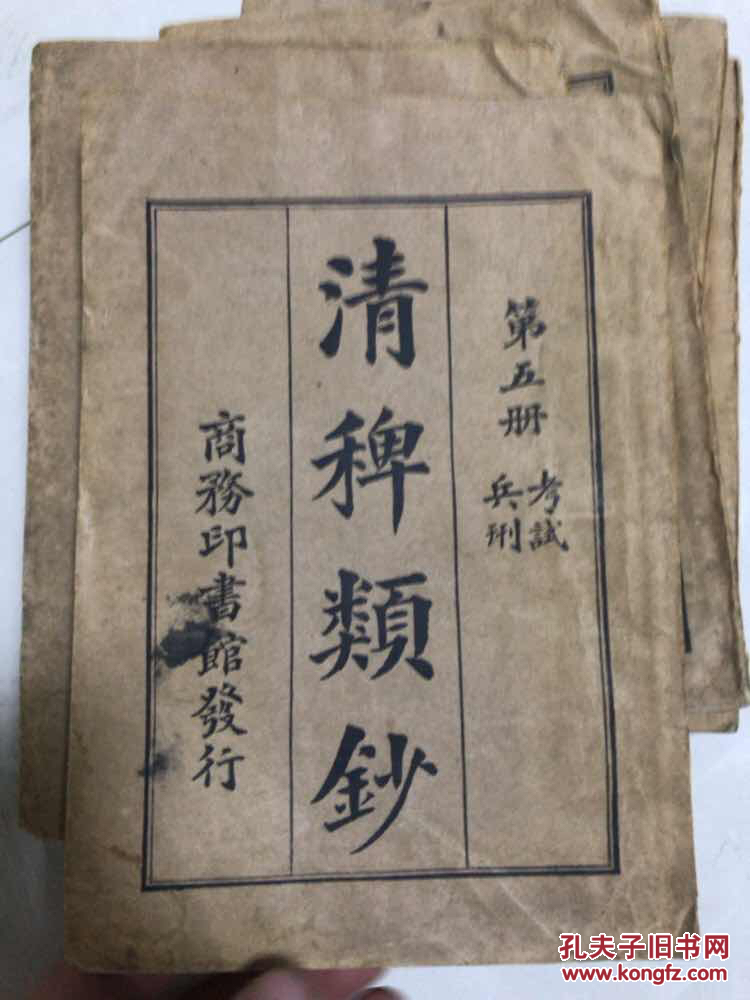 第五册
考試
兵刑
清稗類鈔
商務印書館發行
孔夫子旧书网
www.kongfz.com